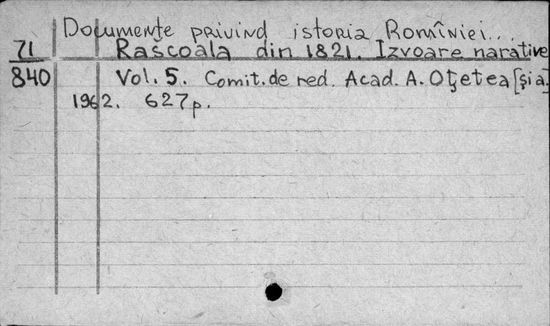 Documente privind istoria Romîniei...
71 Rascoala din 1821. Izvoare narative
840 Vol. 5. Comit. de red. Acad. A. Oţetea [şi a.]
1962. 627 p.